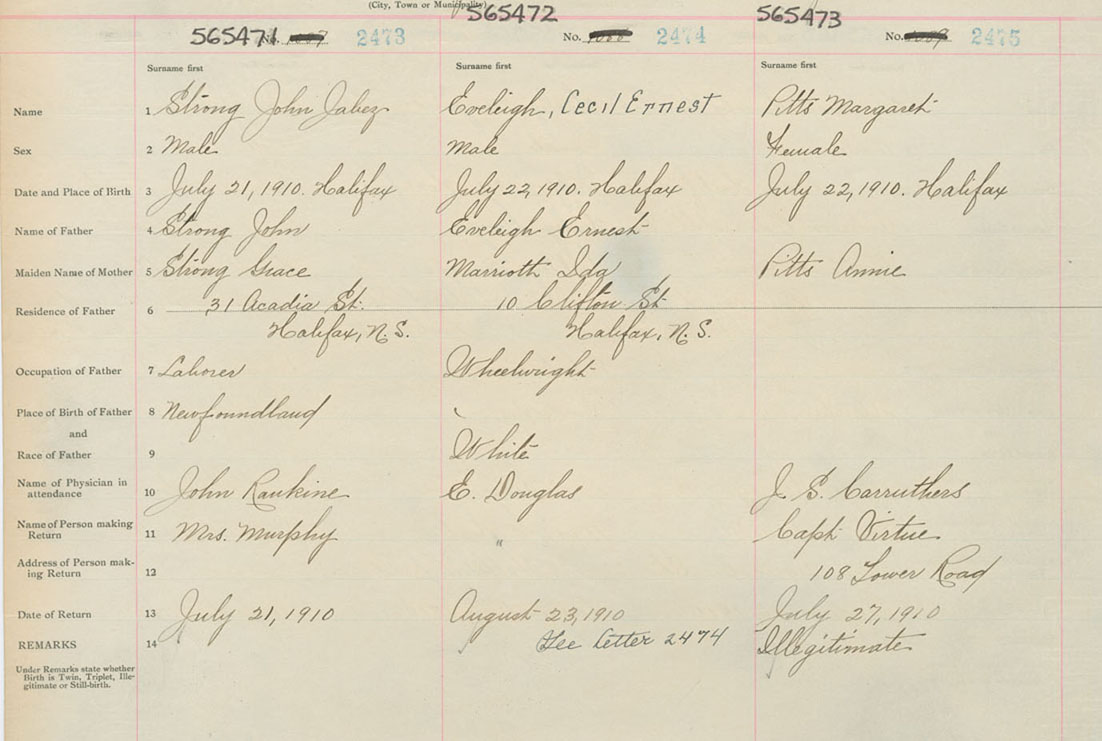 (City, Town or Municipality)
565471 No. 2473 565472 No. 2474 565473 No. 2475
Surname first Surname first Surname first
Name 1 Strong John Jabez Eveleigh, Cecil Ernest Pitts Margaret
Sex 2 Male Male Female
Date and Place of Birth 3 July 21, 1910. Halifax July 22, 1910. Halifax July 22, 1910. Halifax
Name of Father 4 Strong John Eveleigh Ernest
Maiden Name of Mother 5 Strong Grace Marrioth Ida Pitts Annie
Residence of Father 6 31 Acadia St. 10 Clifton St
Halifax, N.S. Halifax, N.S.
Occupation of Father 7 Laborer Wheelwright
Place of Birth of Father 8 Newfoundland
and
Race of Father 9 White
Name of Physician in
attendance 10 John Rankine E. Douglas J. S. Carruthers
Name of Person making
Return 11 Mrs. Murphy " Capt Virtue
Address of Person mak-
ing Return 12 108 Lower Road
Date of Return 13 July 21, 1910 August 23, 1910 July 27, 1910
REMARKS 14 See Letter 2474 Illegitimate
Under Remarks state whether
Birth is Twin, Triplet, Ille-
gitimate or Still-birth.